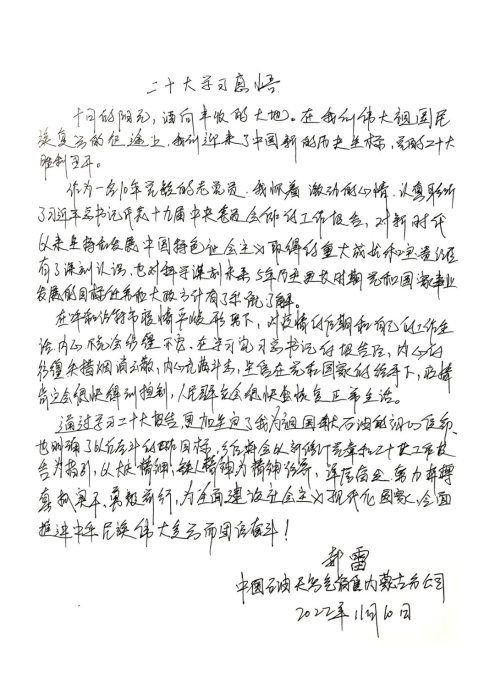 二十大学习感悟
十月的阳光,洒向丰收的大地。在我们伟大祖国民
族复兴的征途上,我们迎来了中国新的历史坐标,党的二十大
胜利召开。
作为一名10年党龄的老党员,我怀着激动的心情,认真聆听
了习近平总书记代表十九届中央委员会作的工作报告,对新时代
以来坚持和发展中国特色社会主义取得的重大成就和宝贵经验
有了深刻认识,也对科学谋划未来5年乃至更长时期党和国家事业
发展的目标任务和大政方针有了系统了解。
在呼和浩特市疫情严峻形势下,对疫情的后期和自己的工作生
活,内心充满彷徨不安,在学习完习总书记的报告后,内心的
彷徨失措烟消云散,内心充满斗志,坚信在党和国家的领导下,疫情
肯定会很快得到控制,人民群众会很快会恢复正常生活。
通过学习二十大报告,更加坚定了我为祖国献石油的初心使命,
也明确了以后奋斗的目标,今后将会以新修订党章和二十大工作报
告为指引,以大庆精神、铁人精神为精神,努力拼搏
真抓实干、勇毅前行,为全面建设社会主义现代化国家、全面
推进中华民族伟大复兴而团结奋斗!
郝雷
中国石油天然气销售内蒙古分公司
2022年11月10日